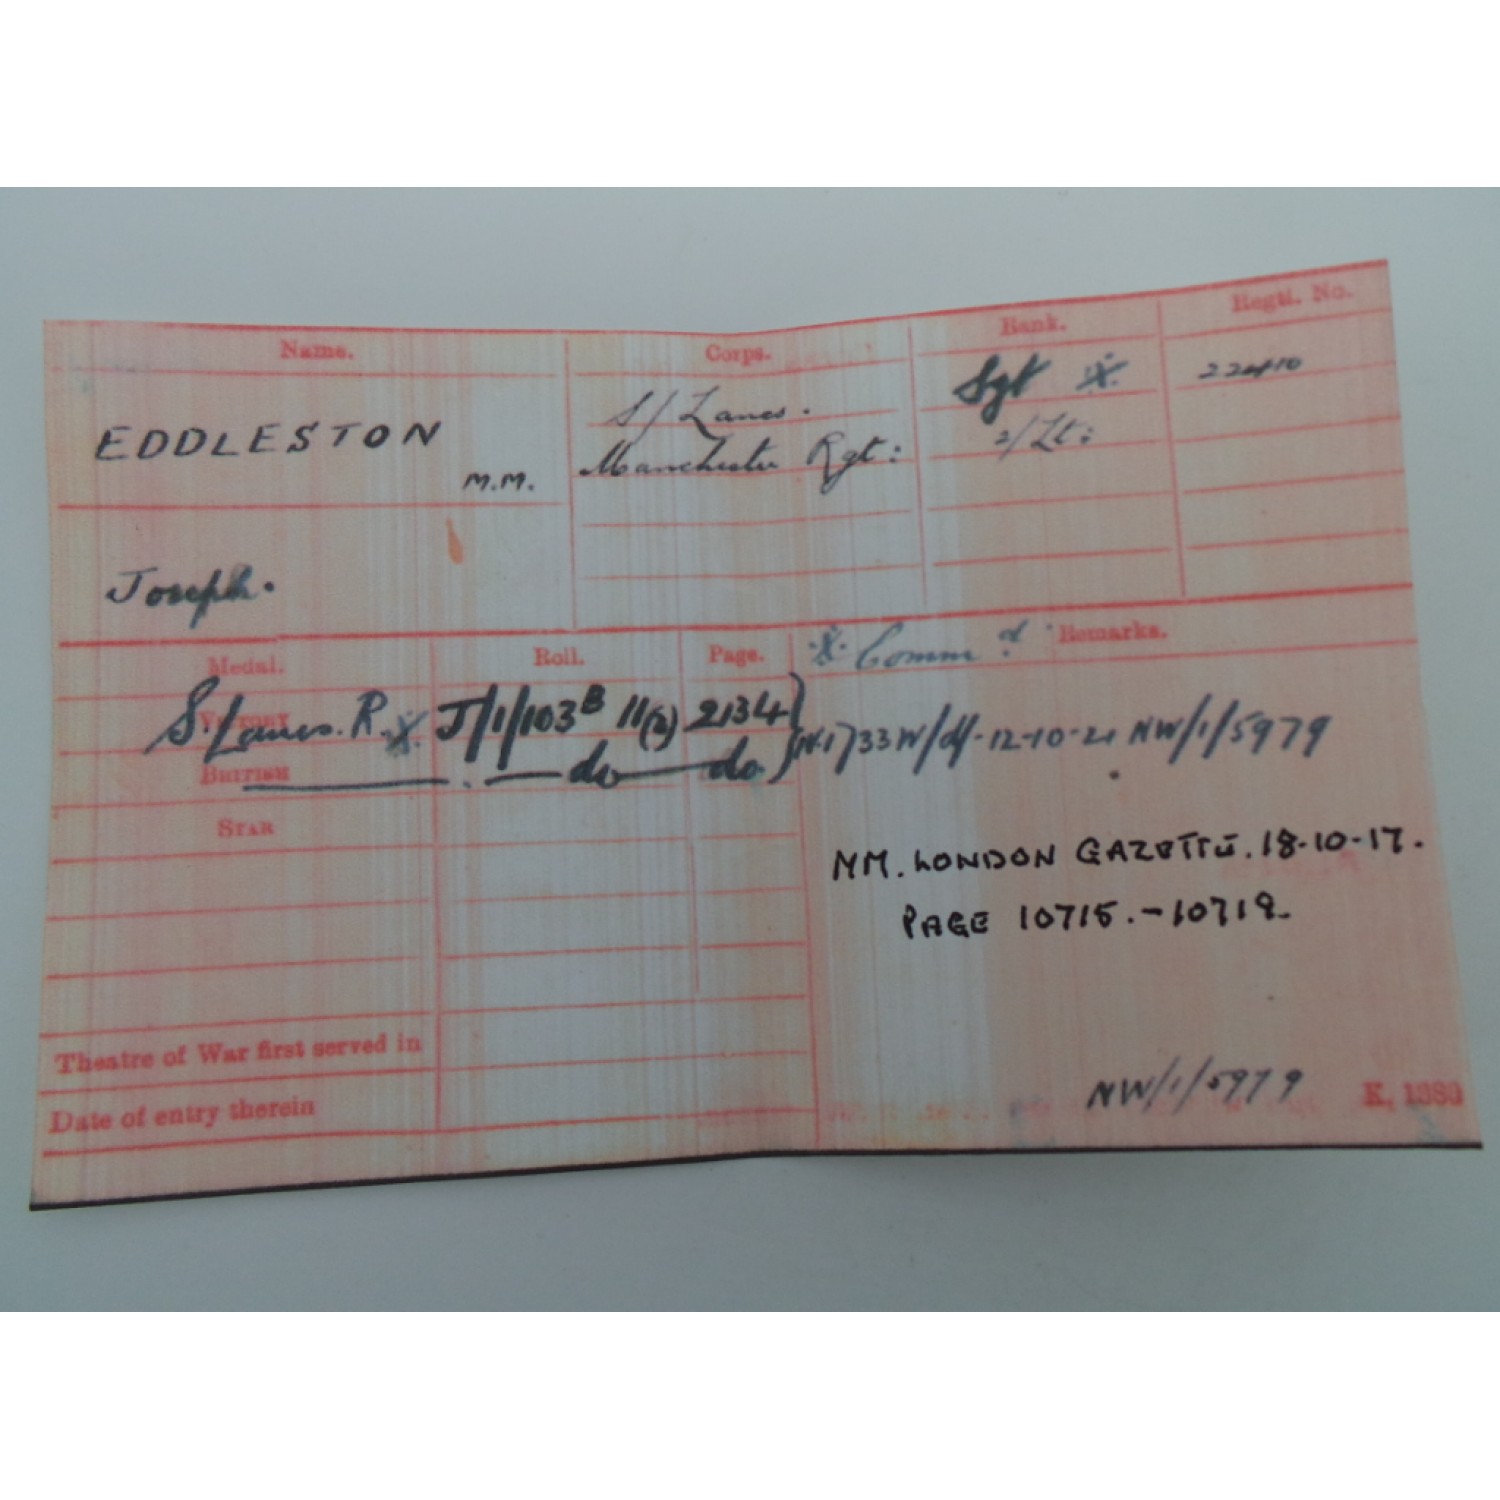 Name. Corps. Rank. Regtl. No.
EDDLESTON M.M.
Joseph.
S/Lancs. Sgt 22410
Manchester Rgt: 2/Lt:
Medal. Roll. Page. Comm d. Remarks.
VICTORY S. Lancs. R. J/1/103B 11(2) 2134
BRITISH do do 33W/ 12-10-21 NW/1/5979
STAR
MM. LONDON GAZETTE. 18-10-17.
PAGE 10715.-10719.
Theatre of War first served in
Date of entry therein
NW/1/5979 K. 1380